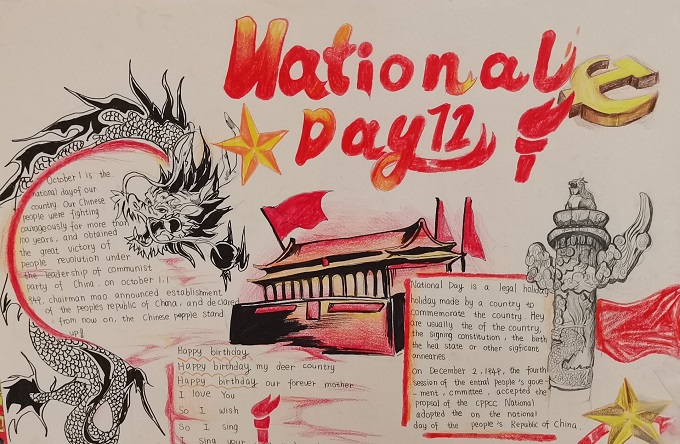 National
Day 72
October 1 is the
national day of our
country. Our Chinese
people were fighting
courageously for more than
100 years, and obtained
the great victory of
people revolution under
the leadership of communist
party of China, on october 1,1
949, chairman mao announced establishment
of the people's republic of China, and declared
from now on, the Chinese pepple stand
up!!
Happy birthday
Happy birthday my deer country
Happy birthday our forever mother
I love You
So I wish
So I sing
I sing your
National Day is a legal holiday
holiday made by a country to
commemorate the country. Hey
are usually the of the country,
the signing constitution, the birth
the hea state or other sigficant
annearies
On December 2,1949, the fourth
session of the entral people's gove-
-ment, cmmittee, accepted the
proposal of the CPPCC National
adopted the on the national
day of the people's Republic of China.